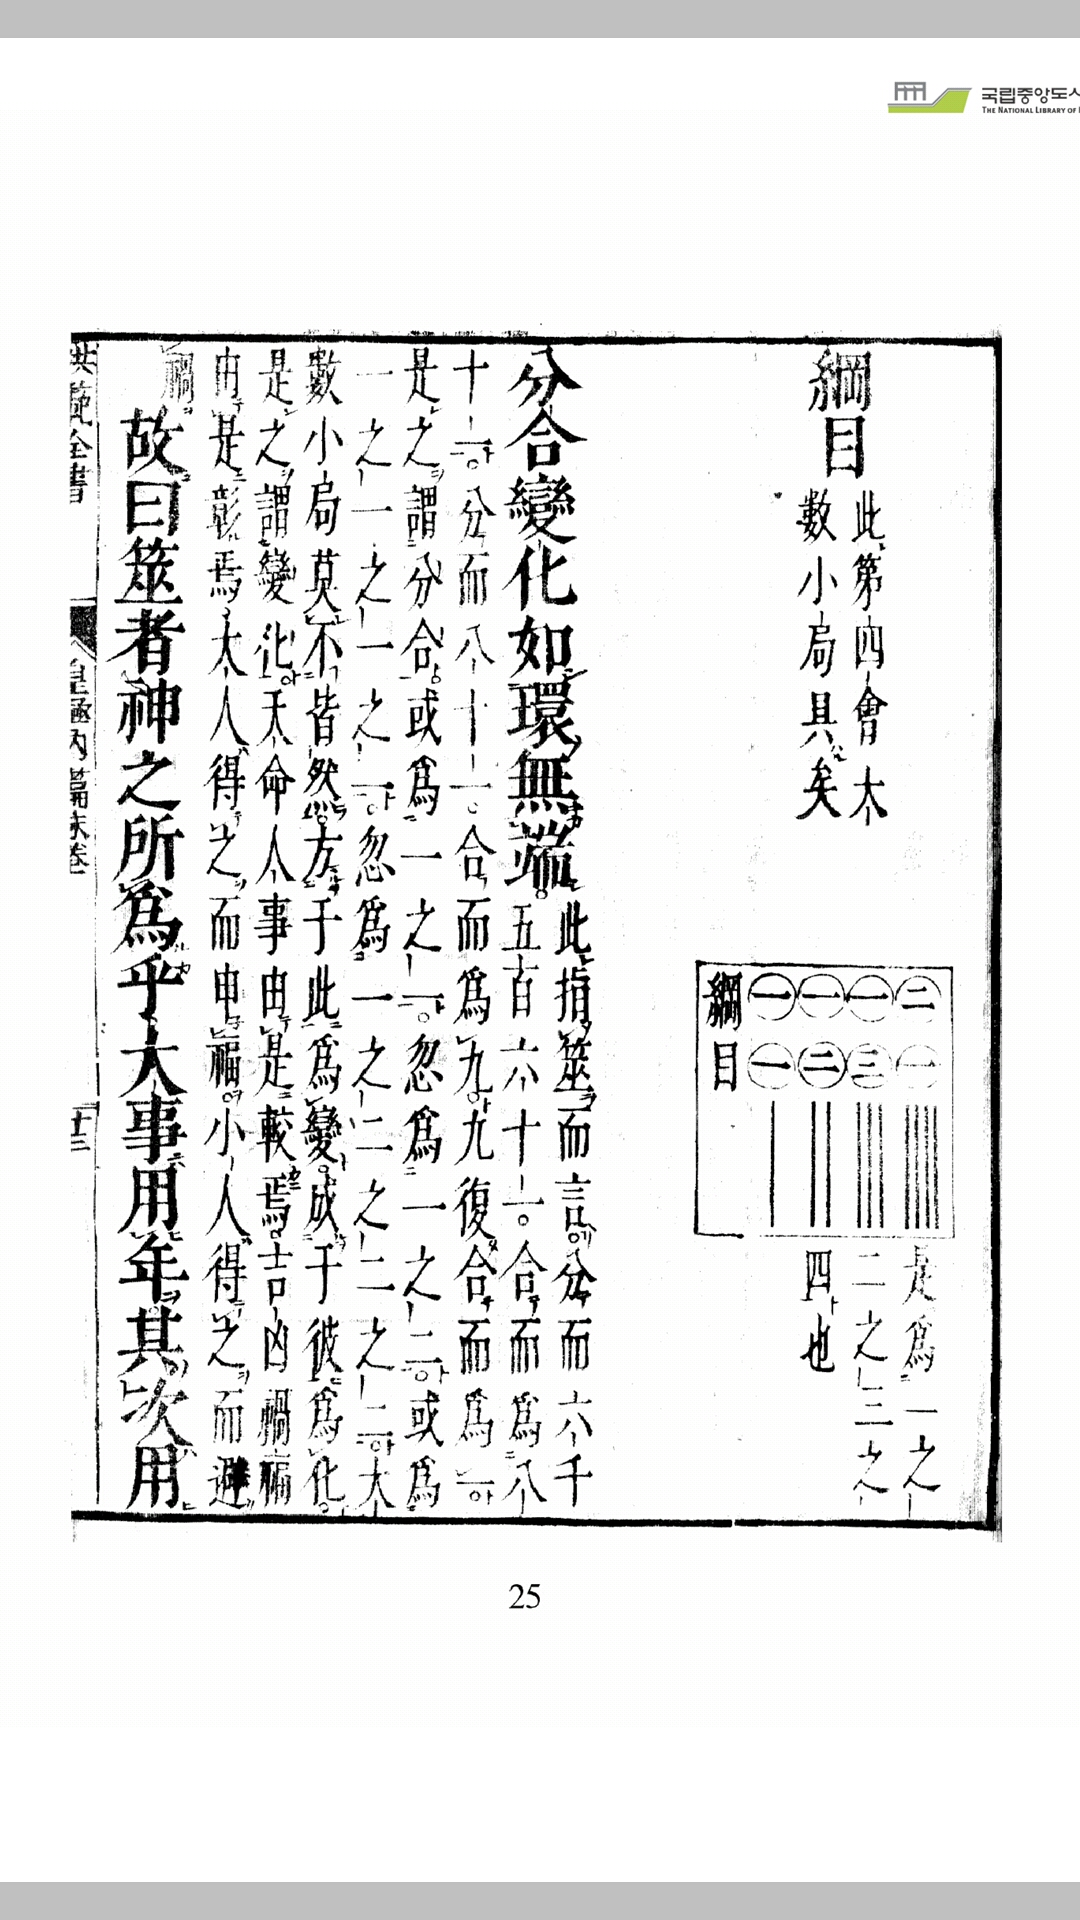 국립중앙도
THE NATIONAL LIBRARY OF
綱目
此第四會大
數小局具矣
二一
一三
一二
一一
綱目
是爲一之
二之三之
四也
分合變化如環無端
此指筮而言分而六千
五百六十一合而爲八
十一分而八十一合而爲九九復合而爲一
是之謂分合或爲一之一忽爲一之二或爲
一之一之一之一忽爲一之二之二之二大
數小局莫不皆然方于此爲變成于彼爲化
是之謂變化天命人事由是較焉吉凶禍福
由是彰焉大人得之而申福小人得之而避
禍
故曰筮者神之所爲乎大事用年其次用
洪範全書
皇極內篇末卷
25